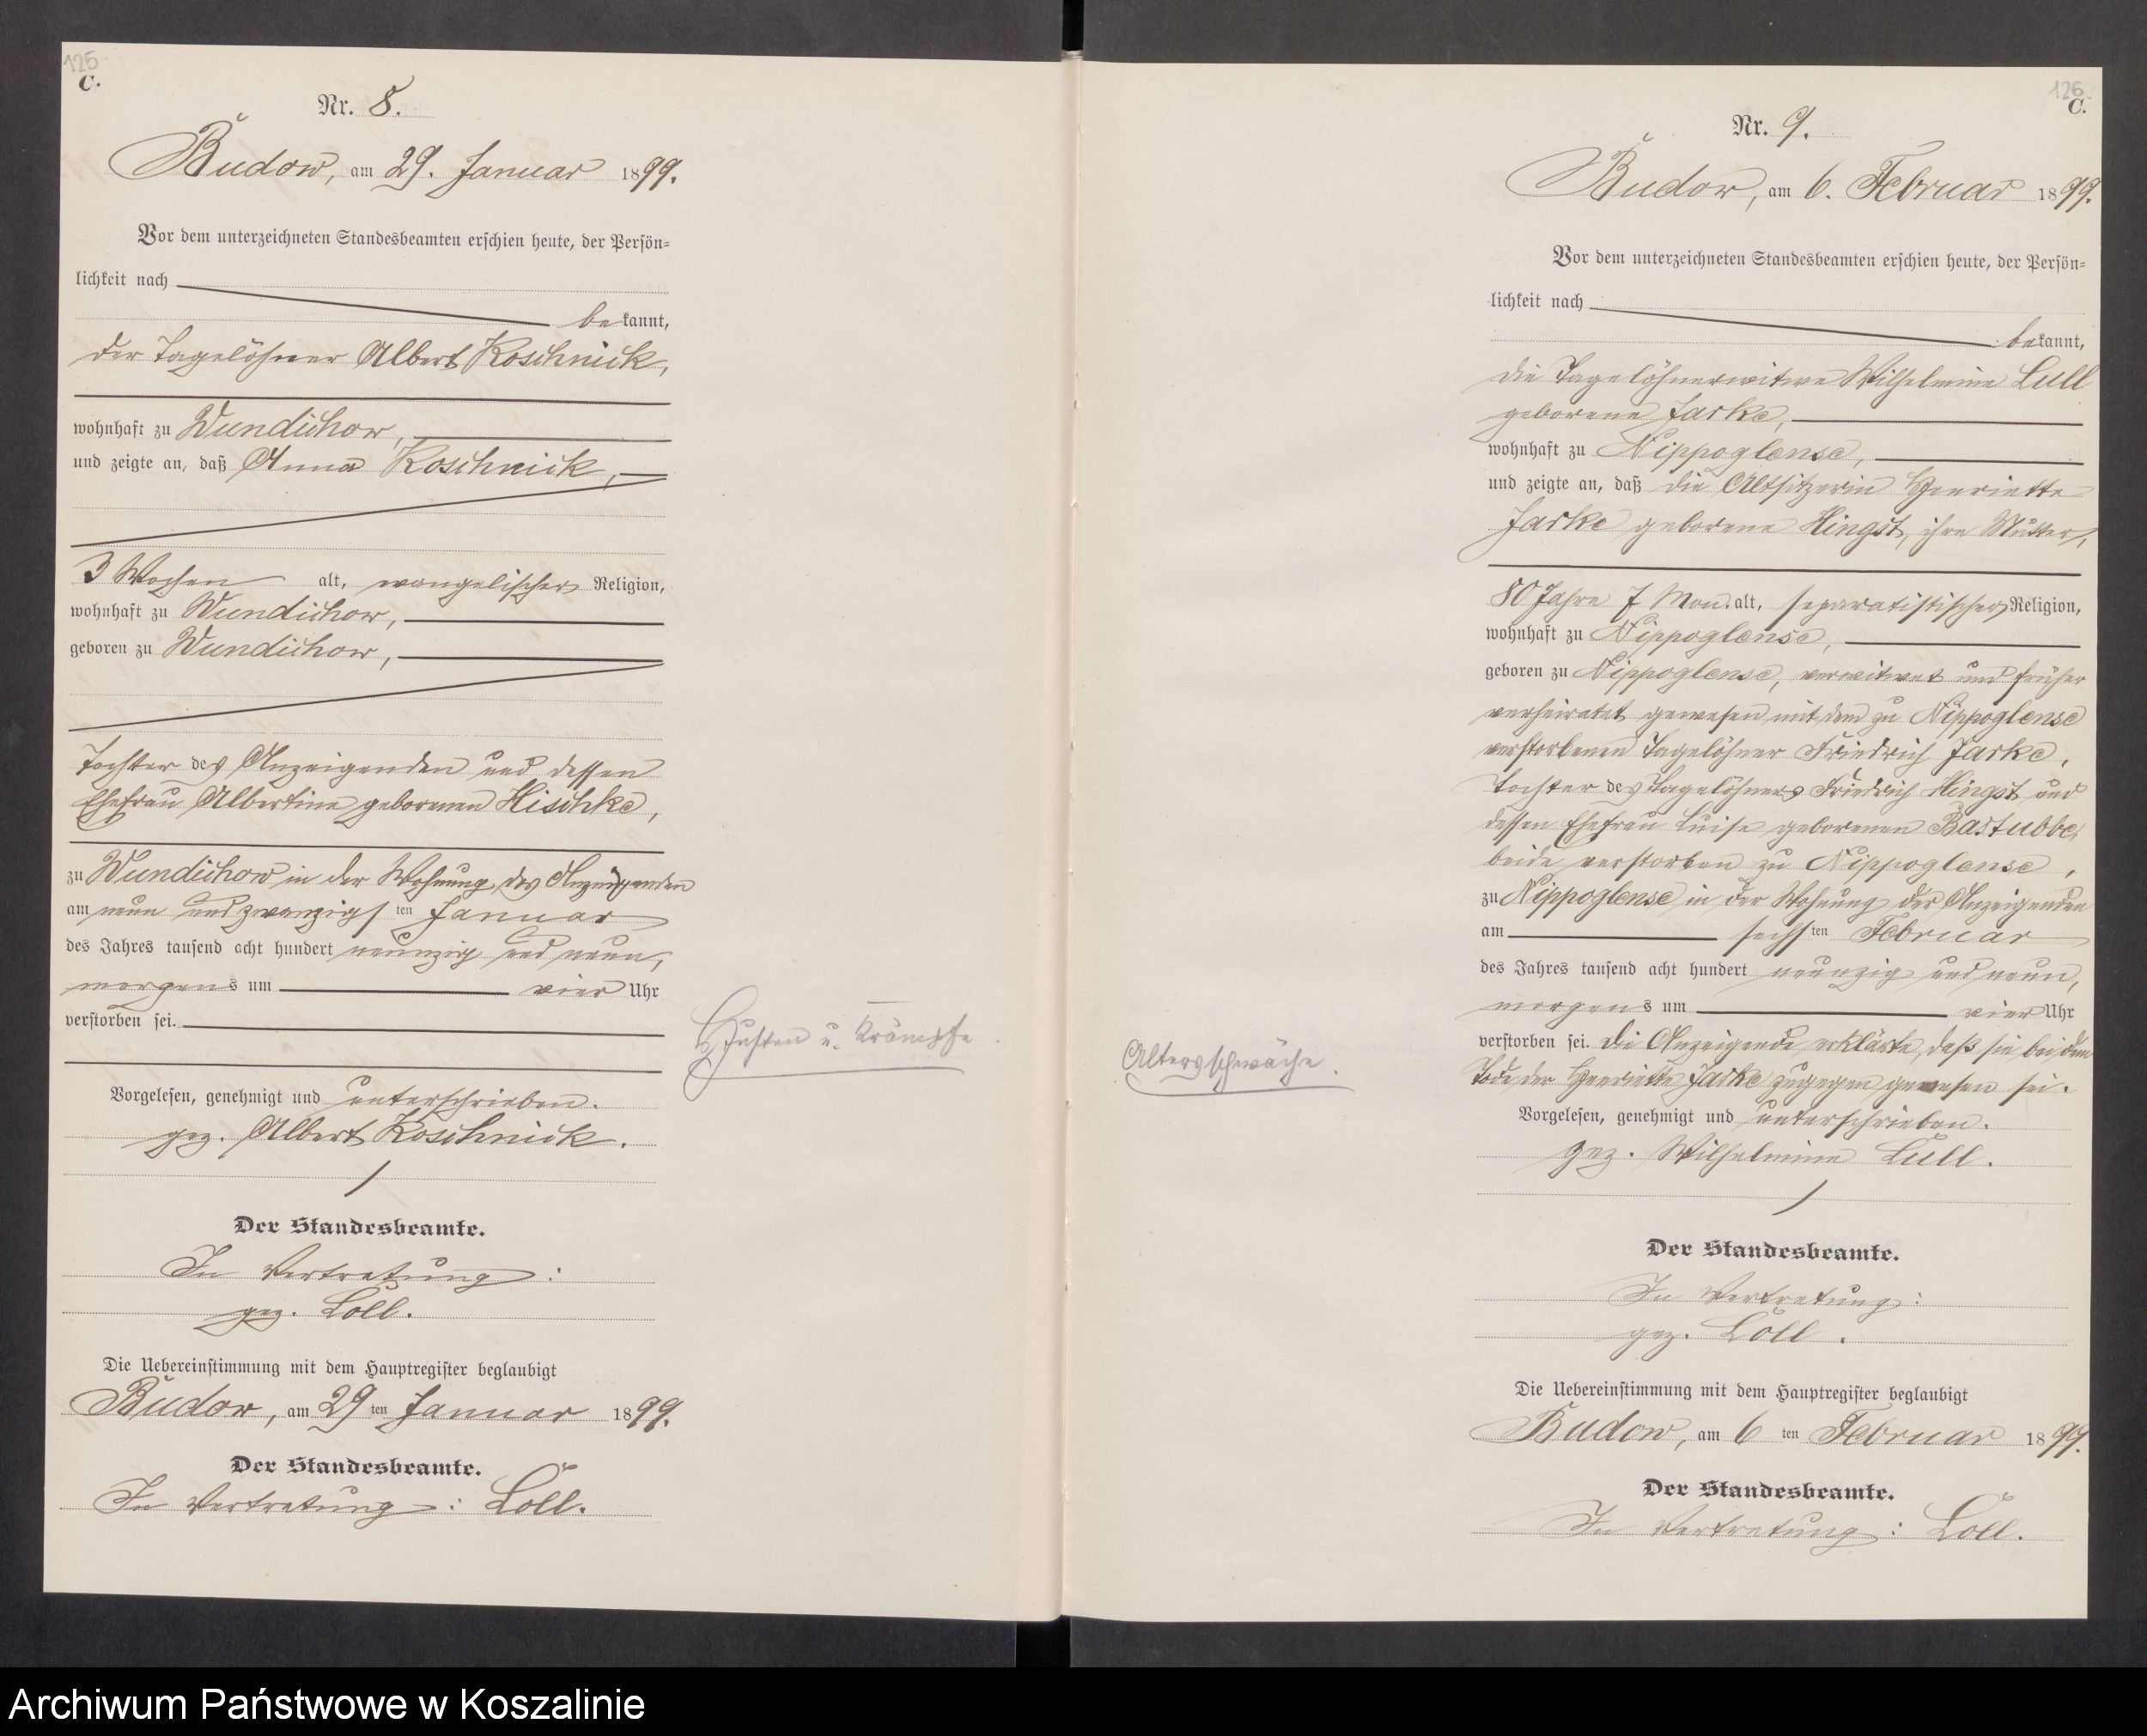 125
C.
Nr. 8.
Budow, am 29. Januar 1899.
Vor dem unterzeichneten Standesbeamten erschien heute, der Persön=
lichkeit nach
bekannt,
der Tagelöhner Albert Koschnick,
wohnhaft zu Wundichow,
und zeigte an, daß Anna Koschnick,
3 Wochen alt, evangelischer Religion,
wohnhaft zu Wundichow,
geboren zu Wundichow,
Tochter des Anzeigenden und dessen
Ehefrau Albertine geborenen Hischke,
zu Wundichow in der Wohnung des Anzeigenden
am neun und zwanzigsten Januar
des Jahres tausend acht hundert neunzig und neun,
morgens um vier Uhr
verstorben sei.
Husten u. Krämpfe
Vorgelesen, genehmigt und unterschrieben.
gez. Albert Koschnick.
Der Standesbeamte.
In Vertretung:
gez. Loll.
Die Uebereinstimmung mit dem Hauptregister beglaubigt
Budow, am 29ten Januar 1899.
Der Standesbeamte.
In Vertretung: Loll.
126
C.
Nr. 9.
Budow, am 6. Februar 1899.
Vor dem unterzeichneten Standesbeamten erschien heute, der Persön=
lichkeit nach
bekannt,
die Tagelöhnerwitwe Wilhelmine Lull
geborene Jarke,
wohnhaft zu Nippoglense,
und zeigte an, daß die Altsitzerin Henriette
Jarke geborene Hingst, ihre Mutter,
80 Jahre 7 Mon. alt, separatistischer Religion,
wohnhaft zu Nippoglense,
geboren zu Nippoglense, verwitwet und früher
verheiratet gewesen mit dem zu Nippoglense
verstorbenen Tagelöhner Friedrich Jarke,
Tochter des Tagelöhners Friedrich Hingst und
dessen Ehefrau Luise geborenen Bastubbe,
beide verstorben zu Nippoglense,
zu Nippoglense in der Wohnung der Anzeigenden
am sechsten Februar
des Jahres tausend acht hundert neunzig und neun,
morgens um vier Uhr
verstorben sei. Die Anzeigende erklärte, daß sie bei dem
Tode der Henriette Jarke zugegen gewesen sei.
Altersschwäche.
Vorgelesen, genehmigt und unterschrieben.
gez. Wilhelmine Lull.
Der Standesbeamte.
In Vertretung:
gez. Loll.
Die Uebereinstimmung mit dem Hauptregister beglaubigt
Budow, am 6ten Februar 1899.
Der Standesbeamte.
In Vertretung: Loll.
Archiwum Państwowe w Koszalinie